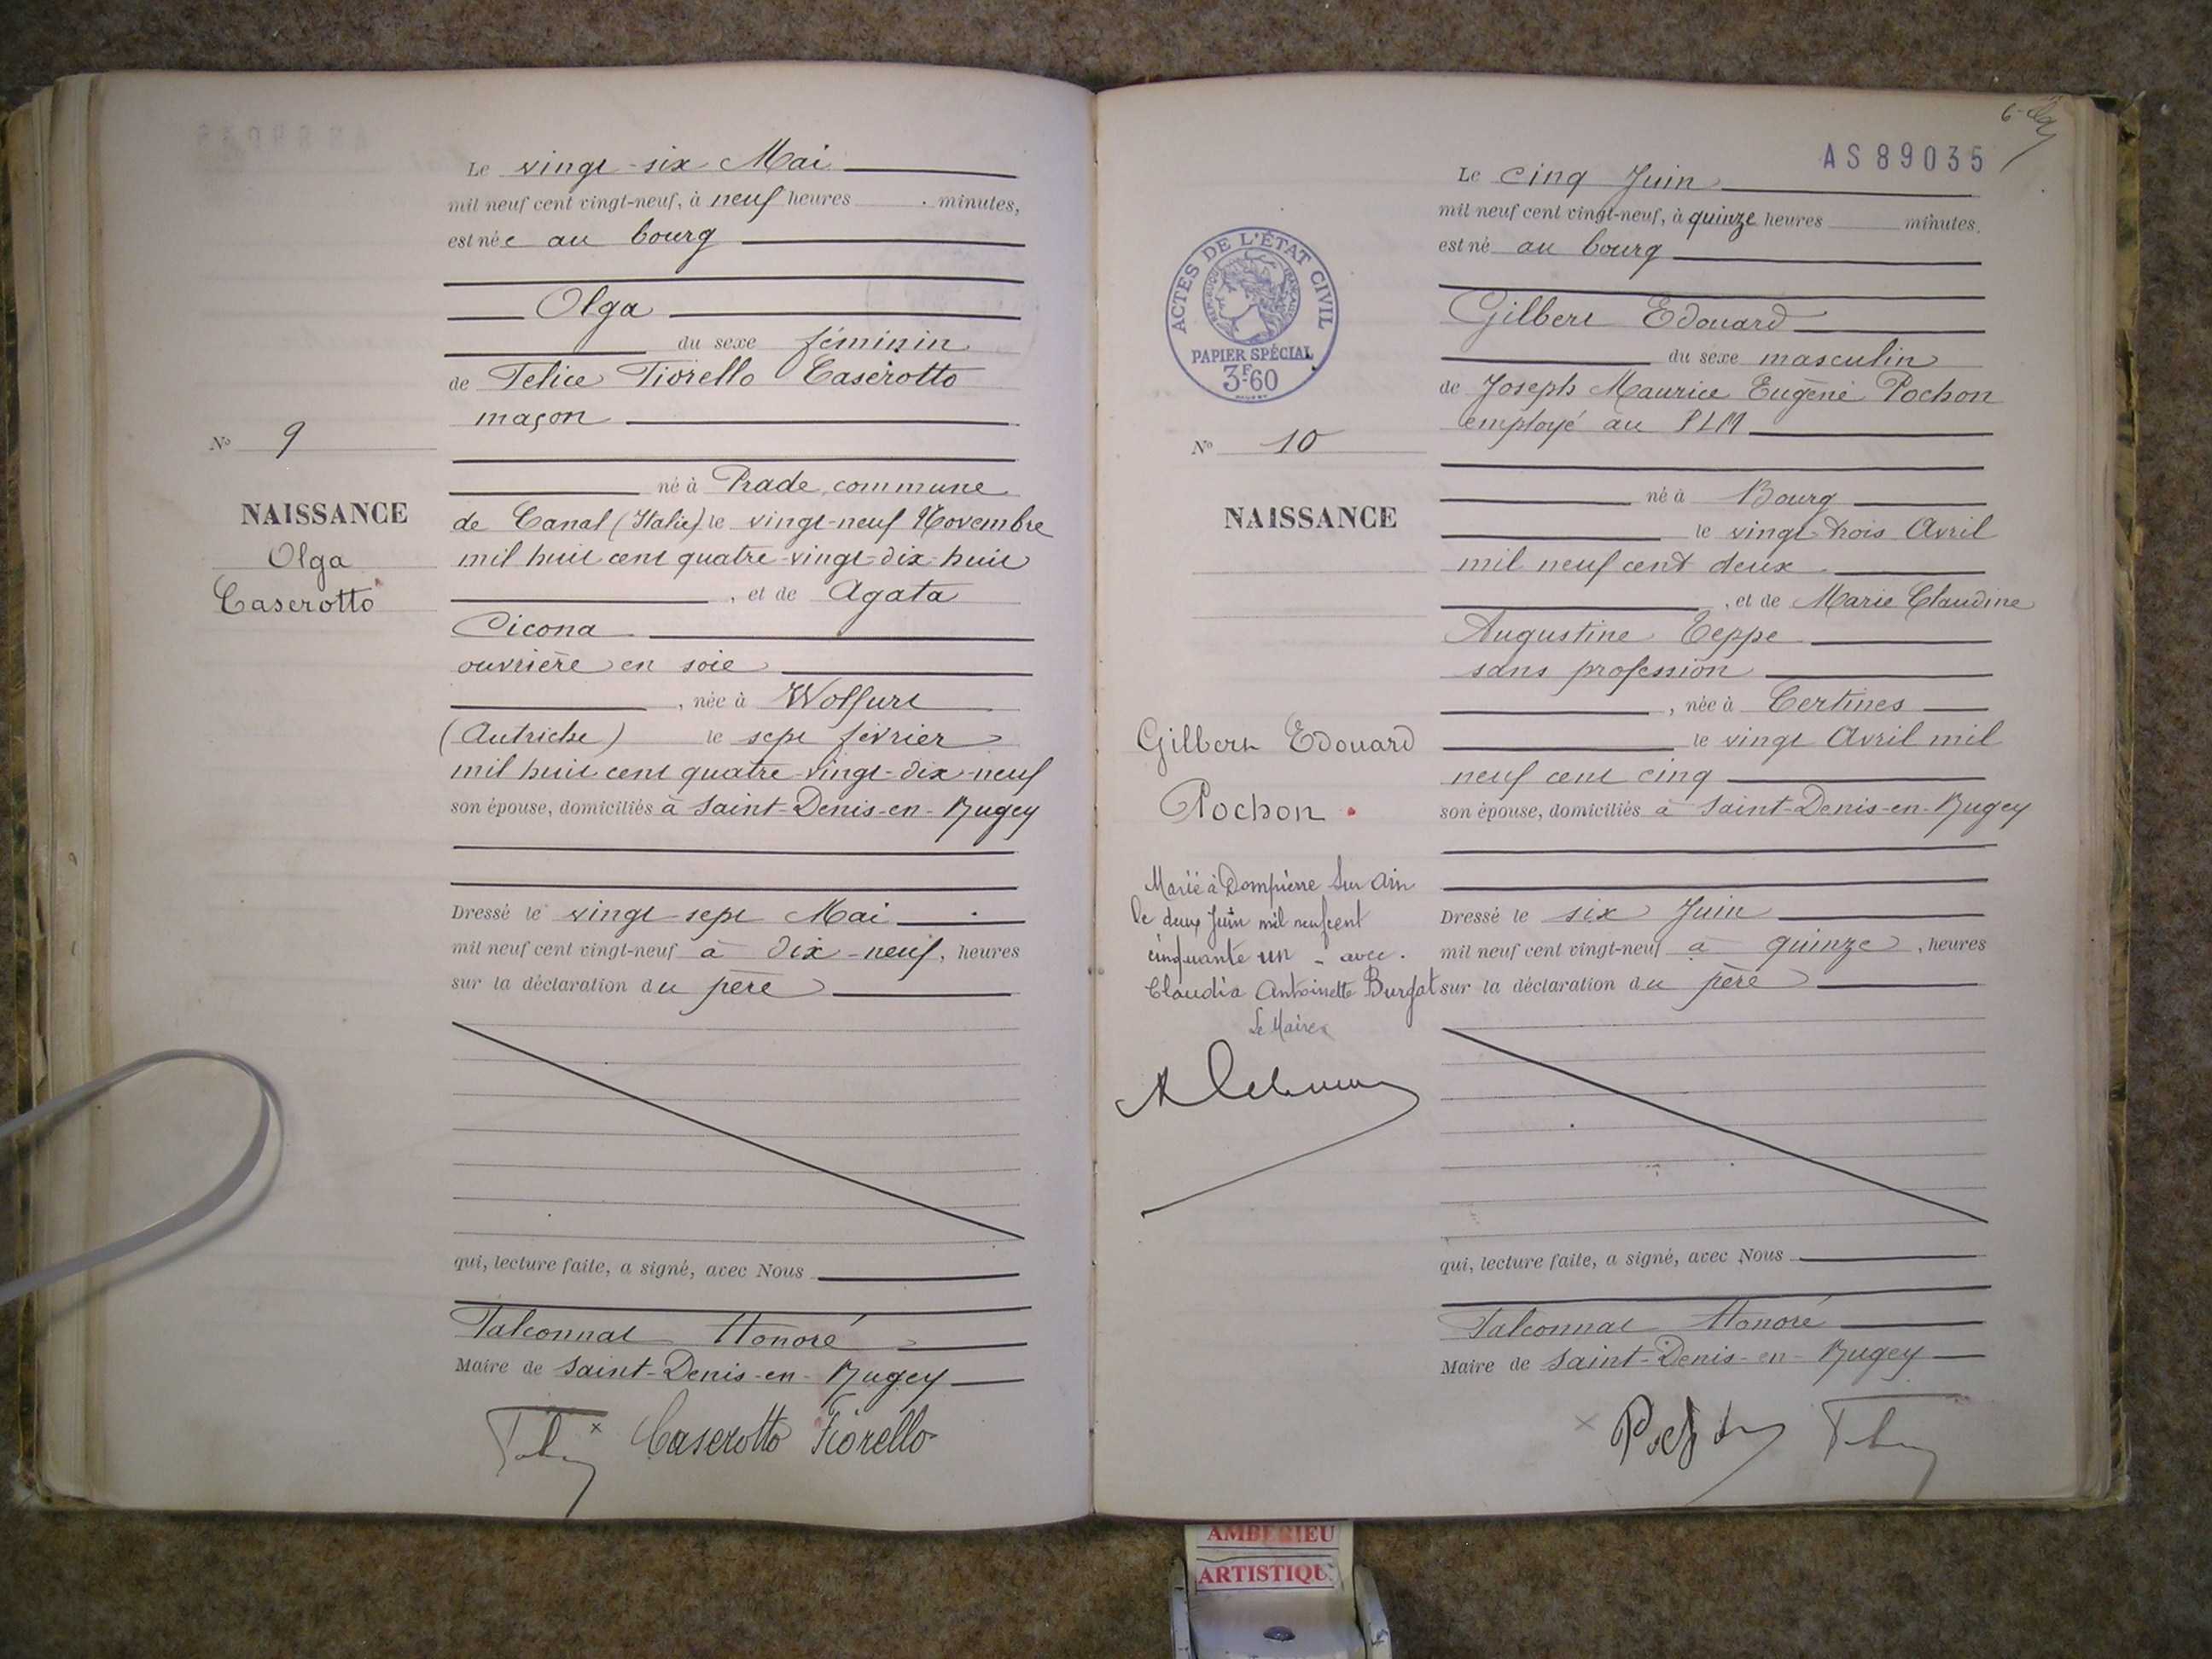 Le vingt-six Mai
mil neuf cent vingt-neuf, à neuf heures minutes,
est née au bourg
Olga
du sexe féminin
de Felice Fiorello Caserotto
maçon
né à Prade, commune
de Canal (Italie) le vingt-neuf Novembre
mil huit cent quatre-vingt-dix-huit
, et de Agata
Cicona
ouvrière en soie
, née à Wolfurt
(Autriche) le sept février
mil huit cent quatre-vingt-dix-neuf
son épouse, domiciliés à Saint-Denis-en-Bugey
Dressé le vingt-sept Mai
mil neuf cent vingt-neuf à dix-neuf, heures
sur la déclaration du père
qui, lecture faite, a signé, avec Nous
Falconnat Honoré
Maire de Saint-Denis-en-Bugey
Caserotto Fiorello
No 9
NAISSANCE
Olga
Caserotto
AS 89035
Le cinq Juin
mil neuf cent vingt-neuf, à quinze heures minutes,
est né au bourg
Gilbert Edouard
du sexe masculin
de Joseph Maurice Eugène Pochon
employé au PLM
né à Bourg
le vingt-trois Avril
mil neuf cent deux
, et de Marie Claudine
Augustine Teppe
sans profession
, née à Certines
le vingt Avril mil
neuf cent cinq
son épouse, domiciliés à Saint-Denis-en-Bugey
Dressé le six Juin
mil neuf cent vingt-neuf à quinze, heures
sur la déclaration du père
qui, lecture faite, a signé, avec Nous
Falconnat Honoré
Maire de Saint-Denis-en-Bugey
ACTES DE L'ÉTAT CIVIL
RÉPUBLIQUE FRANÇAISE
PAPIER SPÉCIAL
3F.60
No 10
NAISSANCE
Gilbert Edouard
Pochon
Marié à Dompierre sur Ain
le deux Juin mil neuf cent
cinquante un - avec.
Claudia Antoinette Burgat
Le Maire
AMBERIEU
ARTISTIQU